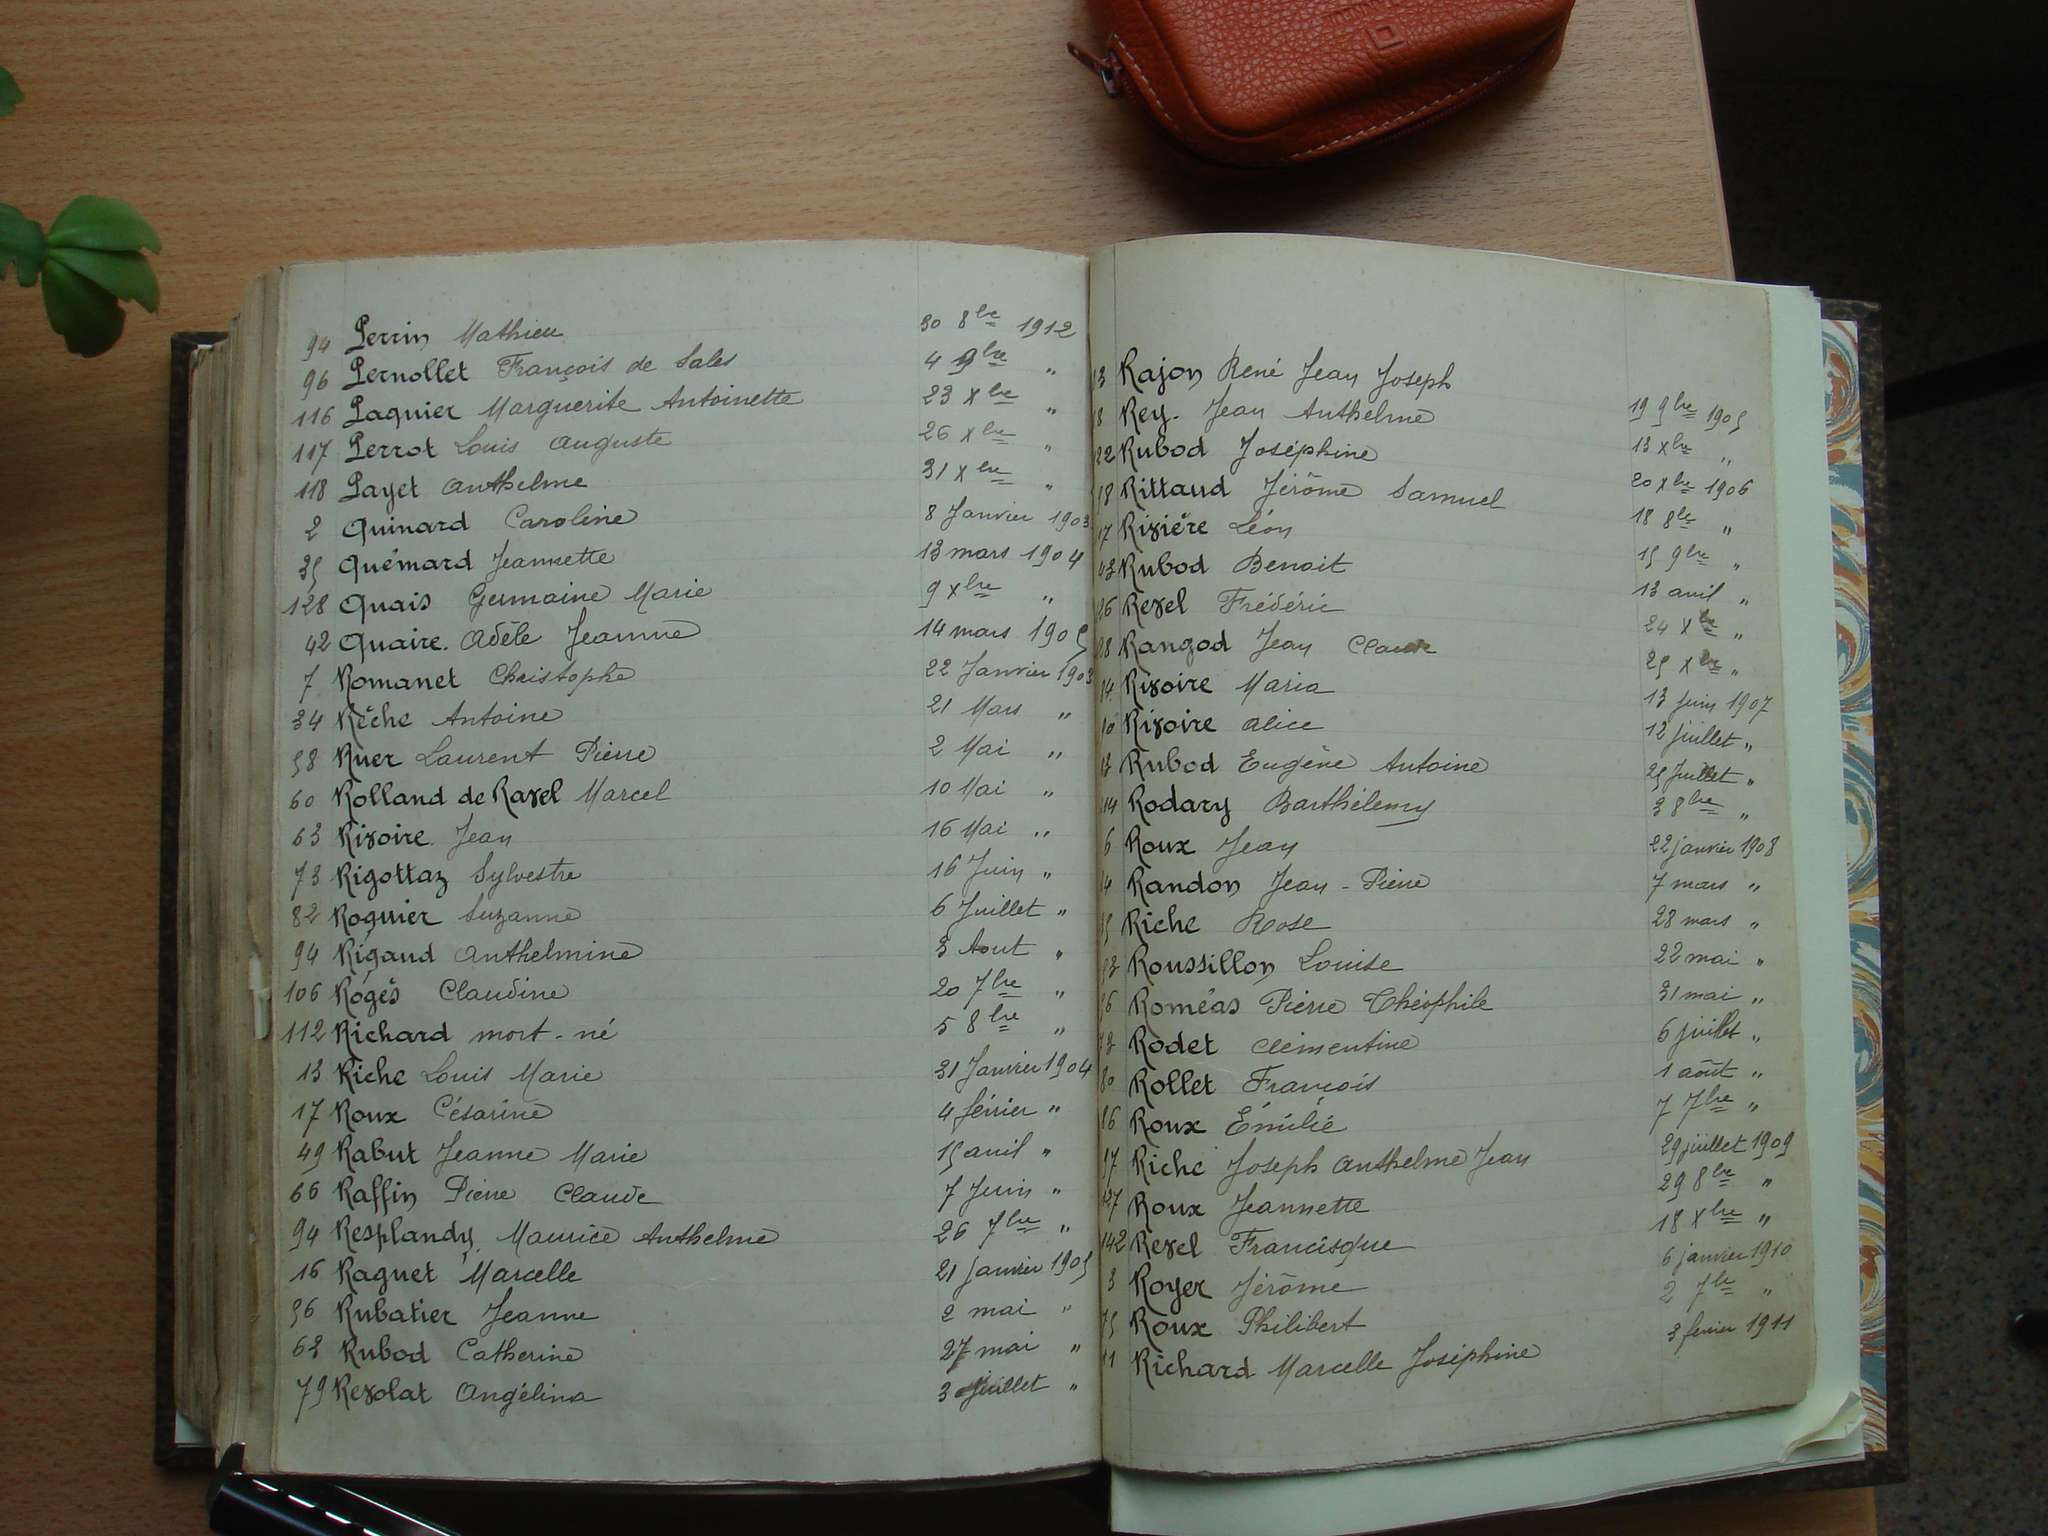 94 Perrin Mathieu 30 8bre 1912
96 Pernollet François de Sales 4 9bre "
116 Paquier Marguerite Antoinette 23 Xbre "
117 Perrot Louis Auguste 26 Xbre "
118 Payet Anthelme 31 Xbre "
2 Quinard Caroline 8 Janvier 1903
35 Quémard Jeannette 13 mars 1904
128 Quais Germaine Marie 9 Xbre "
42 Quaire. Adèle Jeanne 14 mars 1905
7 Romanet Christophe 22 Janvier 1903
34 Rêche Antoine 21 Mars "
58 Ruer Laurent Pierre 2 Mai "
60 Rolland de Ravel Marcel 10 Mai "
63 Rivoire. Jean 16 Mai "
73 Rigottaz Sylvestre 16 Juin "
82 Roguier Suzanne 6 Juillet "
94 Rigaud Anthelmine 3 Aout "
106 Rogès Claudine 20 7bre "
112 Richard mort-né 5 8bre "
13 Riche Louis Marie 31 Janvier 1904
17 Roux Césarine 4 février "
49 Rabut Jeanne Marie 15 avril "
66 Raffin Pierre Claude 7 Juin "
94 Resplandy Maurice Anthelme 26 7bre "
16 Raguet Marcelle 21 janvier 1905
56 Rubatier Jeanne 2 mai "
62 Rubod Catherine 27 mai "
79 Revolat Angélina 3 Juillet "
Rajon René Jean Joseph
Rey. Jean Anthelme 19 9bre 1905
Rubod Joséphine 13 Xbre "
Rittaud Jérôme Samuel 20 Xbre 1906
Rivière Léon 18 8bre "
Rubod Benoit 15 9bre "
Revel Frédéric 13 avril "
Rangod Jean Claude 24 Xbre "
Rivoire Maria 25 Xbre "
Rivoire Alice 13 Juin 1907
Rubod Eugène Antoine 12 juillet "
Rodary Barthélemy 25 Juillet "
6 Roux Jean 3 8bre "
Randon Jean-Pierre 22 janvier 1908
Riche Rose 7 mars "
Roussillon Louise 28 mars "
Roméas Pierre Théophile 22 mai "
Rodet Clémentine 31 mai "
Rollet François 6 juillet "
Roux Émilie 1 août "
Riche Joseph Anthelme Jean 7 7bre "
Roux Jeannette 29 juillet 1909
142 Revel Francisque 29 8bre "
3 Royer Jérôme 18 Xbre "
Roux Philibert 6 janvier 1910
11 Richard Marcelle Joséphine 2 7bre "
3 fevrier 1911